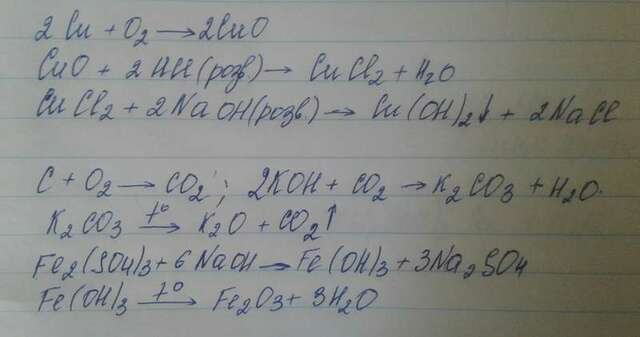 2Cu + O₂ → 2CuO
CuO + 2HCl(розв) → CuCl₂ + H₂O
CuCl₂ + 2NaOH(розв.) → Cu(OH)₂↓ + 2NaCl
C + O₂ → CO₂; 2KOH + CO₂ → K₂CO₃ + H₂O.
K₂CO₃ t°→ K₂O + CO₂↑
Fe₂(SO₄)₃ + 6NaOH → Fe(OH)₃ + 3Na₂SO₄
Fe(OH)₃ t°→ Fe₂O₃ + 3H₂O